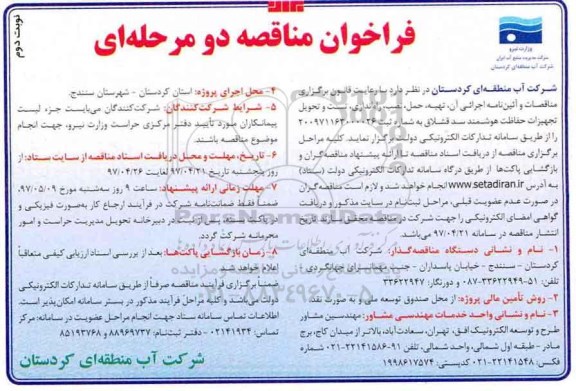 نوبت دوم
فراخوان مناقصه دو مرحله‌ای
وزارت نیرو
شرکت مدیریت منابع آب ایران
شرکت آب منطقه‌ای کردستان
شرکت آب منطقه‌ای کردستان در نظر دارد با رعایت قانون برگزاری
مناقصات و آئین‌نامه اجرائی آن، تهیه، حمل، نصب، راه‌اندازی، تست و تحویل
تجهیزات حفاظت هوشمند سد قشلاق به شماره ثبت ۲۰۰۹۷۱۱۶۳۰۰۰۰۲۶
را از طریق سامانه تدارکات الکترونیکی دولت برگزار نماید. کلیه مراحل
برگزاری مناقصه از دریافت اسناد مناقصه تا ارائه پیشنهاد مناقصه‌گران و
بازگشایی پاکت‌ها از طریق درگاه سامانه تدارکات الکترونیکی دولت (ستاد)
به آدرس www.setadiran.ir انجام خواهد شد و لازم است مناقصه‌گران
در صورت عدم عضویت قبلی، مراحل ثبت‌نام در سایت مذکور و دریافت
گواهی امضای الکترونیکی را جهت شرکت در مناقصه محقق سازند. تاریخ
انتشار مناقصه در سامانه ۹۷/۰۴/۲۱ می‌باشد.
۱- نام و نشانی دستگاه مناقصه‌گذار: شرکت آب منطقه‌ای
کردستان - سنندج - خیابان پاسداران - جنب هتل جهانگردی
تلفن: ۵۱-۳۳۶۲۲۹۴۹-۰۸۷ و دورنگار: ۳۳۶۲۲۹۴۷
۲- روش تأمین مالی پروژه: از محل صندوق توسعه ملی و به صورت نقد
۳- نام و نشانی واحد خدمات مهندسی مشاور: مهندسین مشاور
طرح و توسعه الکترونیک افق، تهران، سعادت‌آباد، بالاتر از میدان کاج، برج
مادر - طبقه اول شمالی، واحد شمالی، تلفن ۹۱-۲۲۱۴۱۵۸۶-۰۲۱ شماره
فکس: ۲۲۱۴۱۵۴۸-۰۲۱ کدپستی: ۱۹۹۸۶۱۷۵۷۴
۴- محل اجرای پروژه: استان کردستان - شهرستان سنندج.
۵- شرایط شرکت‌کنندگان: شرکت‌کنندگان می‌بایست جزء لیست
پیمانکاران مورد تأیید دفتر مرکزی حراست وزارت نیرو، جهت انجام
موضوع مناقصه باشند.
۶- تاریخ، مهلت و محل دریافت اسناد مناقصه از سایت ستاد: از
روز پنجشنبه تاریخ ۹۷/۰۴/۲۱ لغایت ۹۷/۰۴/۲۶
۷- مهلت زمانی ارائه پیشنهاد: ساعت ۹ روز سه‌شنبه مورخ ۹۷/۰۵/۰۹.
ضمناً فقط ضمانت‌نامه شرکت در فرآیند ارجاع کار به‌صورت فیزیکی و
در پاکت در بسته می‌بایست در دبیرخانه تحویل مدیریت حراست و امور
محرمانه شرکت گردد.
۸- زمان بازگشایی پاکت‌ها: بعد از بررسی اسناد ارزیابی کیفی متعاقباً
اعلام خواهد شد
ضمناً برگزاری فرآیند مناقصه صرفاً از طریق سامانه تدارکات الکترونیکی
دولت می‌باشد و کلیه مراحل فرآیند مذکور در بستر سامانه امکان‌پذیر است.
اطلاعات تماس سامانه ستاد جهت انجام مراحل عضویت در سامانه: مرکز
تماس: ۰۲۱۴۱۹۳۴ - دفتر ثبت‌نام: ۸۸۹۶۹۷۳۷ و ۸۵۱۹۳۷۶۸
شرکت آب منطقه‌ای کردستان
ParsNamadData
پایگاه خبری اطلاع رسانی مناقصه و مزایده
۰۲۱-۸۸۳۴۹۶۷۰-۵